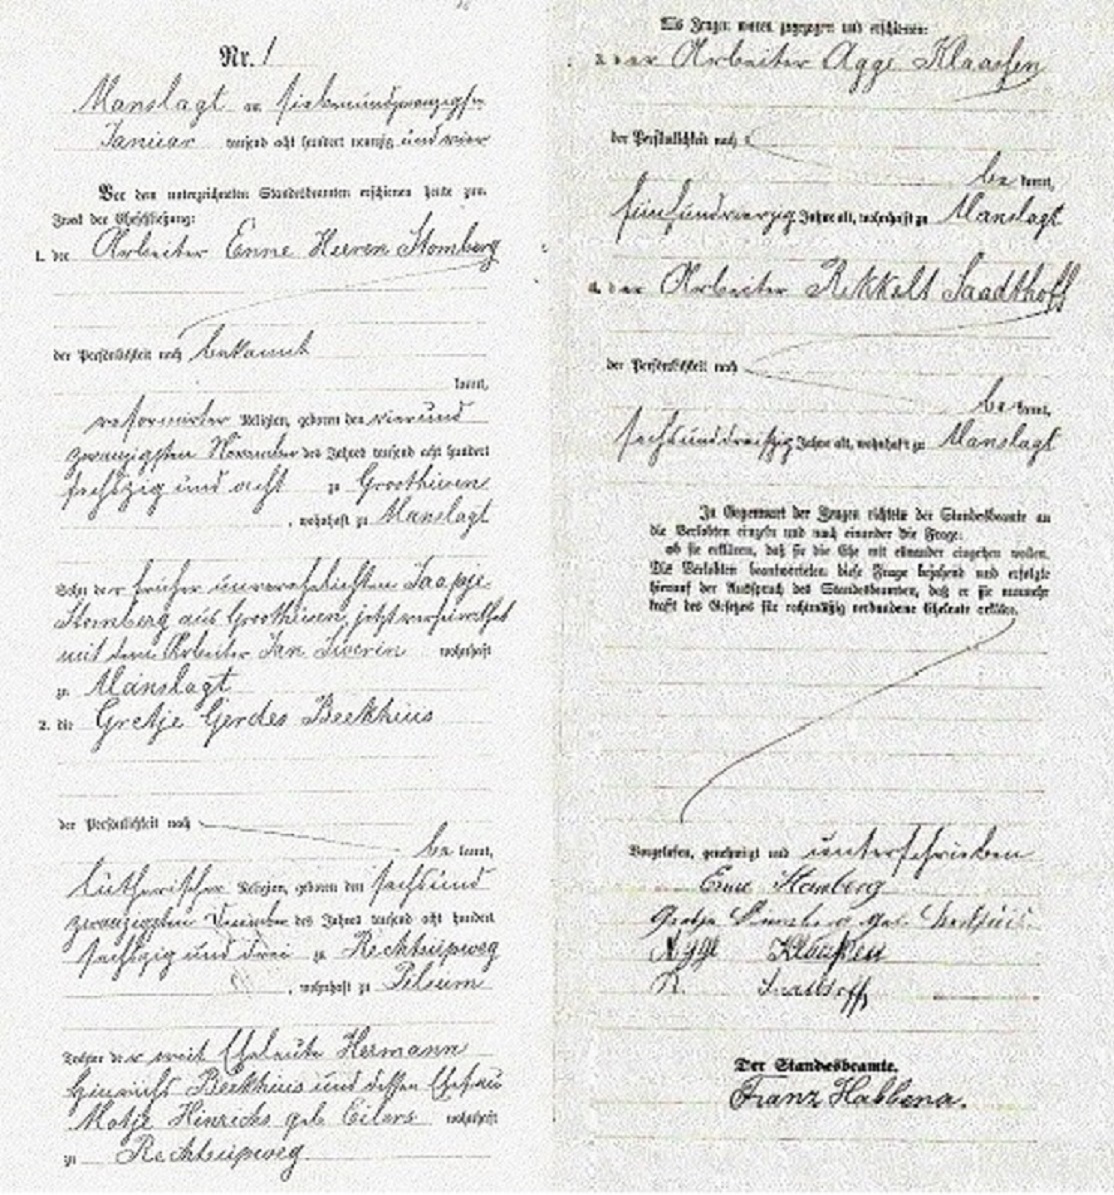 Nr. 1
Manslagt am siebenundzwanzigsten
Januar tausend acht hundert neunzig und vier
Vor dem unterzeichneten Standesbeamten erschienen heute zum
Zweck der Eheschließung:
1. der Arbeiter Enne Heeren Stomberg
der Persönlichkeit nach bekannt
kannt,
reformirter Religion, geboren den vierund
zwanzigsten November des Jahres tausend acht hundert
sechszig und acht zu Groothusen
, wohnhaft zu Manslagt
Sohn der früher unverehelichten Taapje
Stomberg aus Groothusen, jetzt verheirathet
mit dem Arbeiter Jan wohnhaft
zu Manslagt
2. die Gretje Gerdes Beekhuis
der Persönlichkeit nach
be kannt,
lutherischer Religion, geboren den sechsund
zwanzigsten des Jahres tausend acht hundert
sechszig und drei zu Rechtsupweg
, wohnhaft zu Pilsum
Tochter der weil Eheleute Hermann
Hinrichs Beekhuis und dessen Ehefrau
Hinrichs geb Eilers wohnhaft
zu Rechtsupweg
Als Zeugen waren zugezogen und erschienen:
3. der Arbeiter Agge Klaassen
der Persönlichkeit nach
be kannt,
fünfundvierzig Jahre alt, wohnhaft zu Manslagt
4. der Arbeiter Rekkelt Saadthoff
der Persönlichkeit nach
be kannt,
sechsunddreißig Jahre alt, wohnhaft zu Manslagt
In Gegenwart der Zeugen richtete der Standesbeamte an
die Verlobten einzeln und nach einander die Frage:
ob sie erklären, daß sie die Ehe mit einander eingehen wollen.
Die Verlobten beantworteten diese Frage bejahend und erfolgte
hierauf der Ausspruch des Standesbeamten, daß er sie nunmehr
kraft des Gesetzes für rechtmäßig verbundene Eheleute erkläre.
Vorgelesen, genehmigt und unterschrieben
Enne Stomberg
Gretje Stomberg geb. Beekhuis
Agge Klaassen
R. Saathoff
Der Standesbeamte.
Franz Habbena.